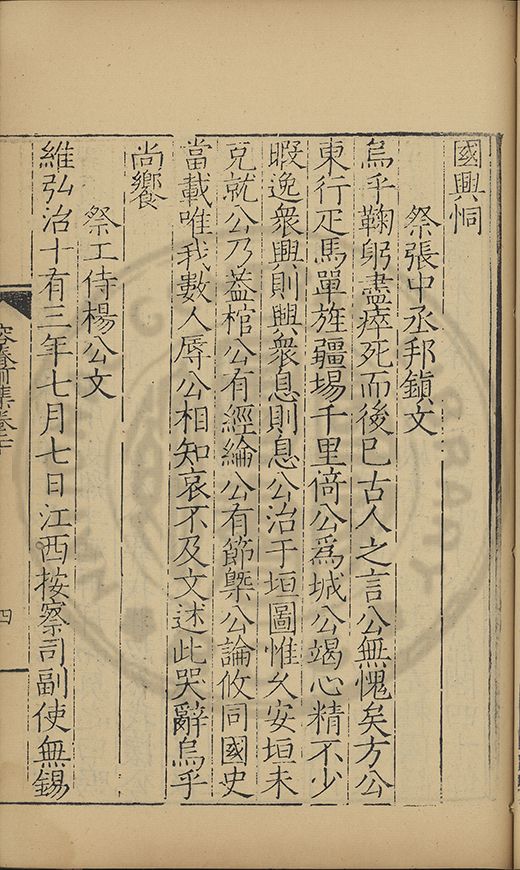 國興恫
祭張中丞邦鎮文
烏乎鞠躬盡瘁死而後已古人之言公無愧矣方公
東行疋馬單旌疆埸千里倚公爲城公竭心精不少
暇逸衆興則興衆息則息公治于垣圖惟乆安垣未
克就公乃葢棺公有經綸公有節槩公論攸同國史
當載唯我數人辱公相知哀不及文述此哭辭烏乎
尚饗
祭工侍楊公文
維弘治十有三年七月七日江西按察司副使無錫
容春前集卷二十
四